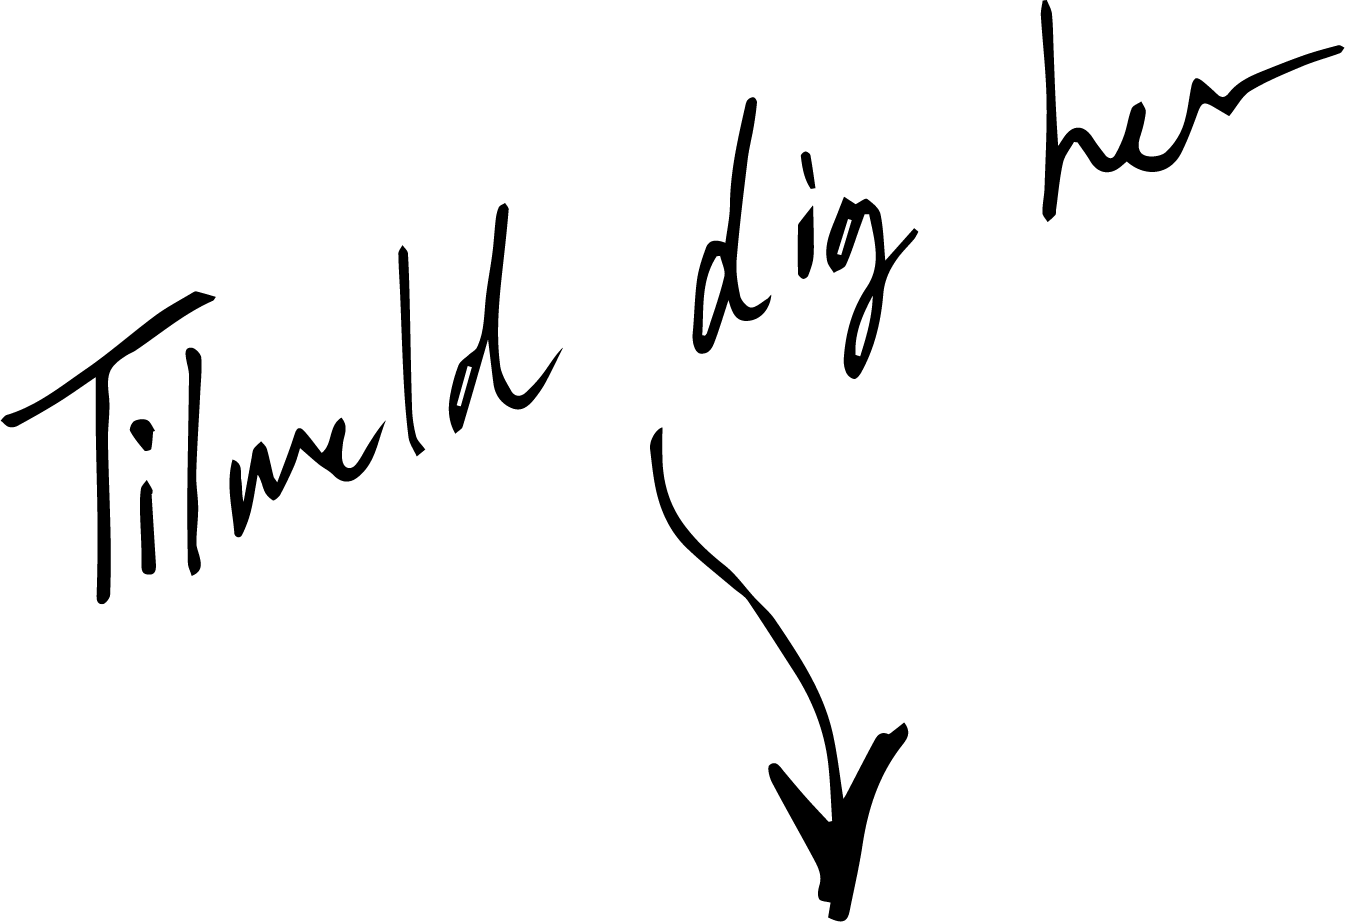 Tilmeld dig her